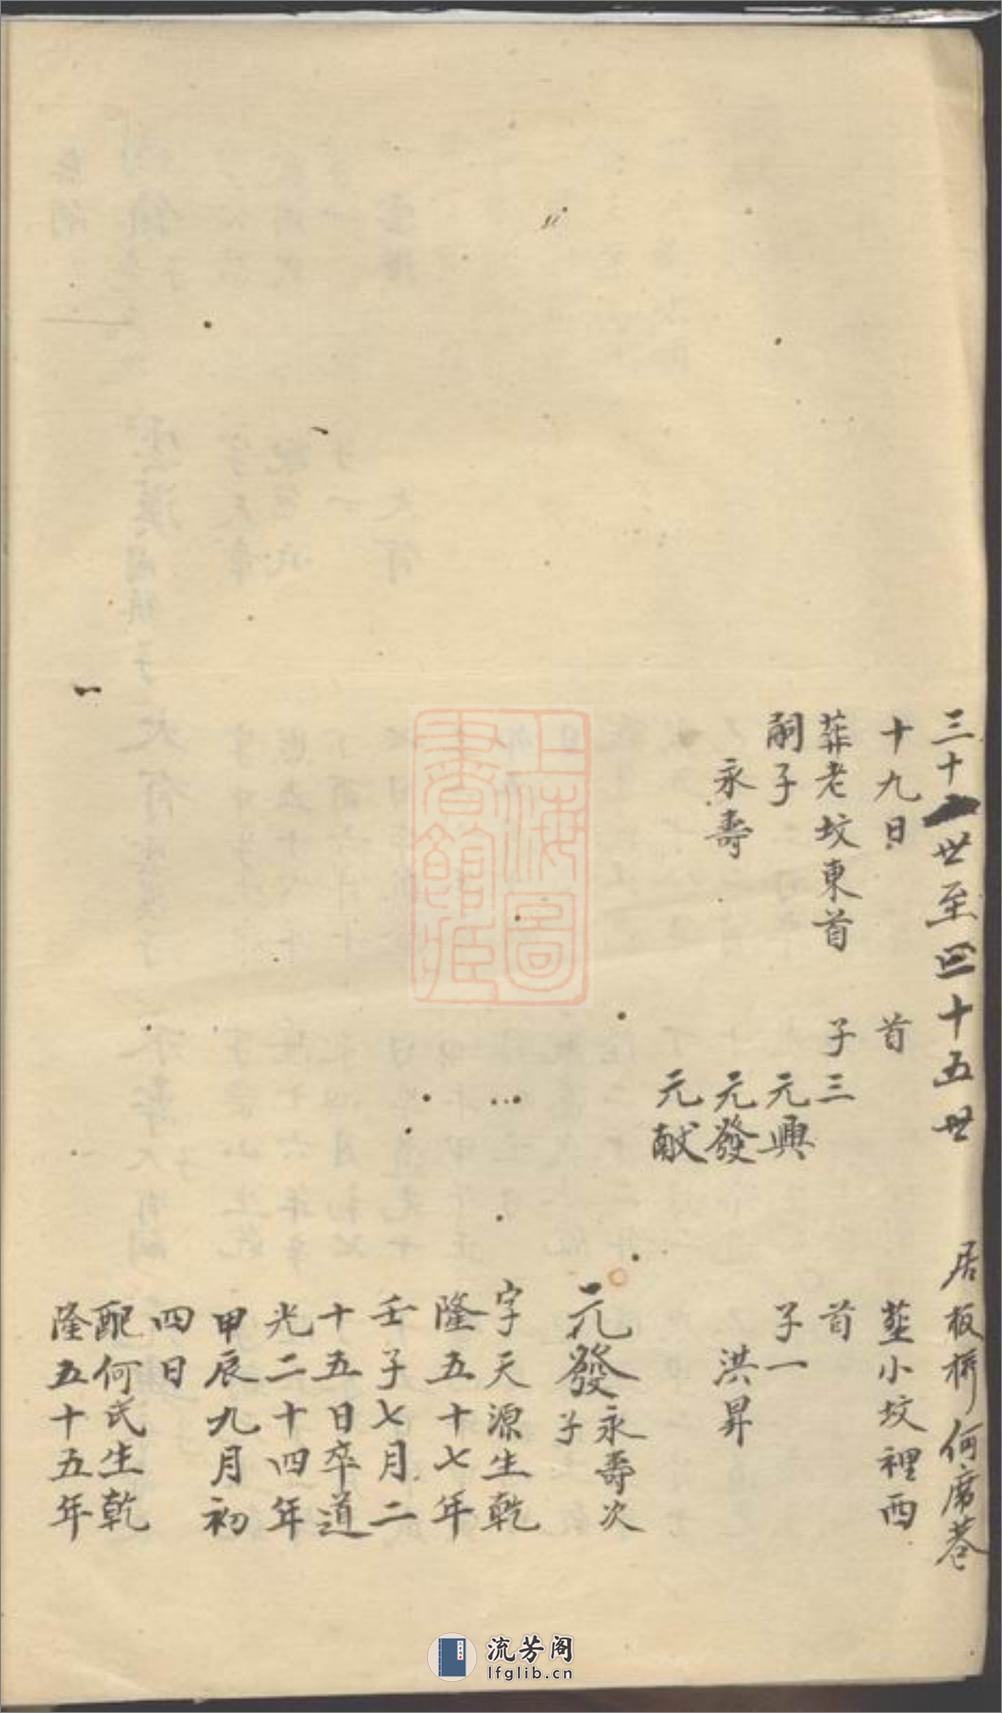 三十一世至四十五世
居板桥何席巷
十九日
首
葬小坟裡西
葬老坟東首
子三
首
嗣子
元興
子一
永壽
元發
洪昇
元献
元發永壽次
子
字天源生乾
隆五十七年
壬子七月二
十五日卒道
光二十四年
甲辰九月初
四日
配何氏生乾
隆五十五年
上海圖
書館藏
流芳阁
lfglib.cn